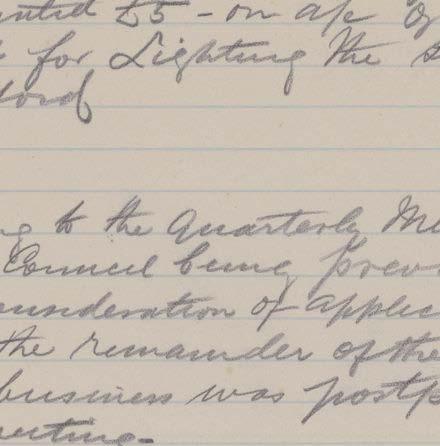 anted £5 - on a/c of
for Lighting the s
ford
ng to the Quarterly Me
Council being prev
onsideration of applic
the remainder of the
business was postp
eeting.